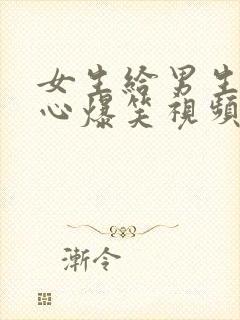 女生给男生
心爆笑視頻
漸令